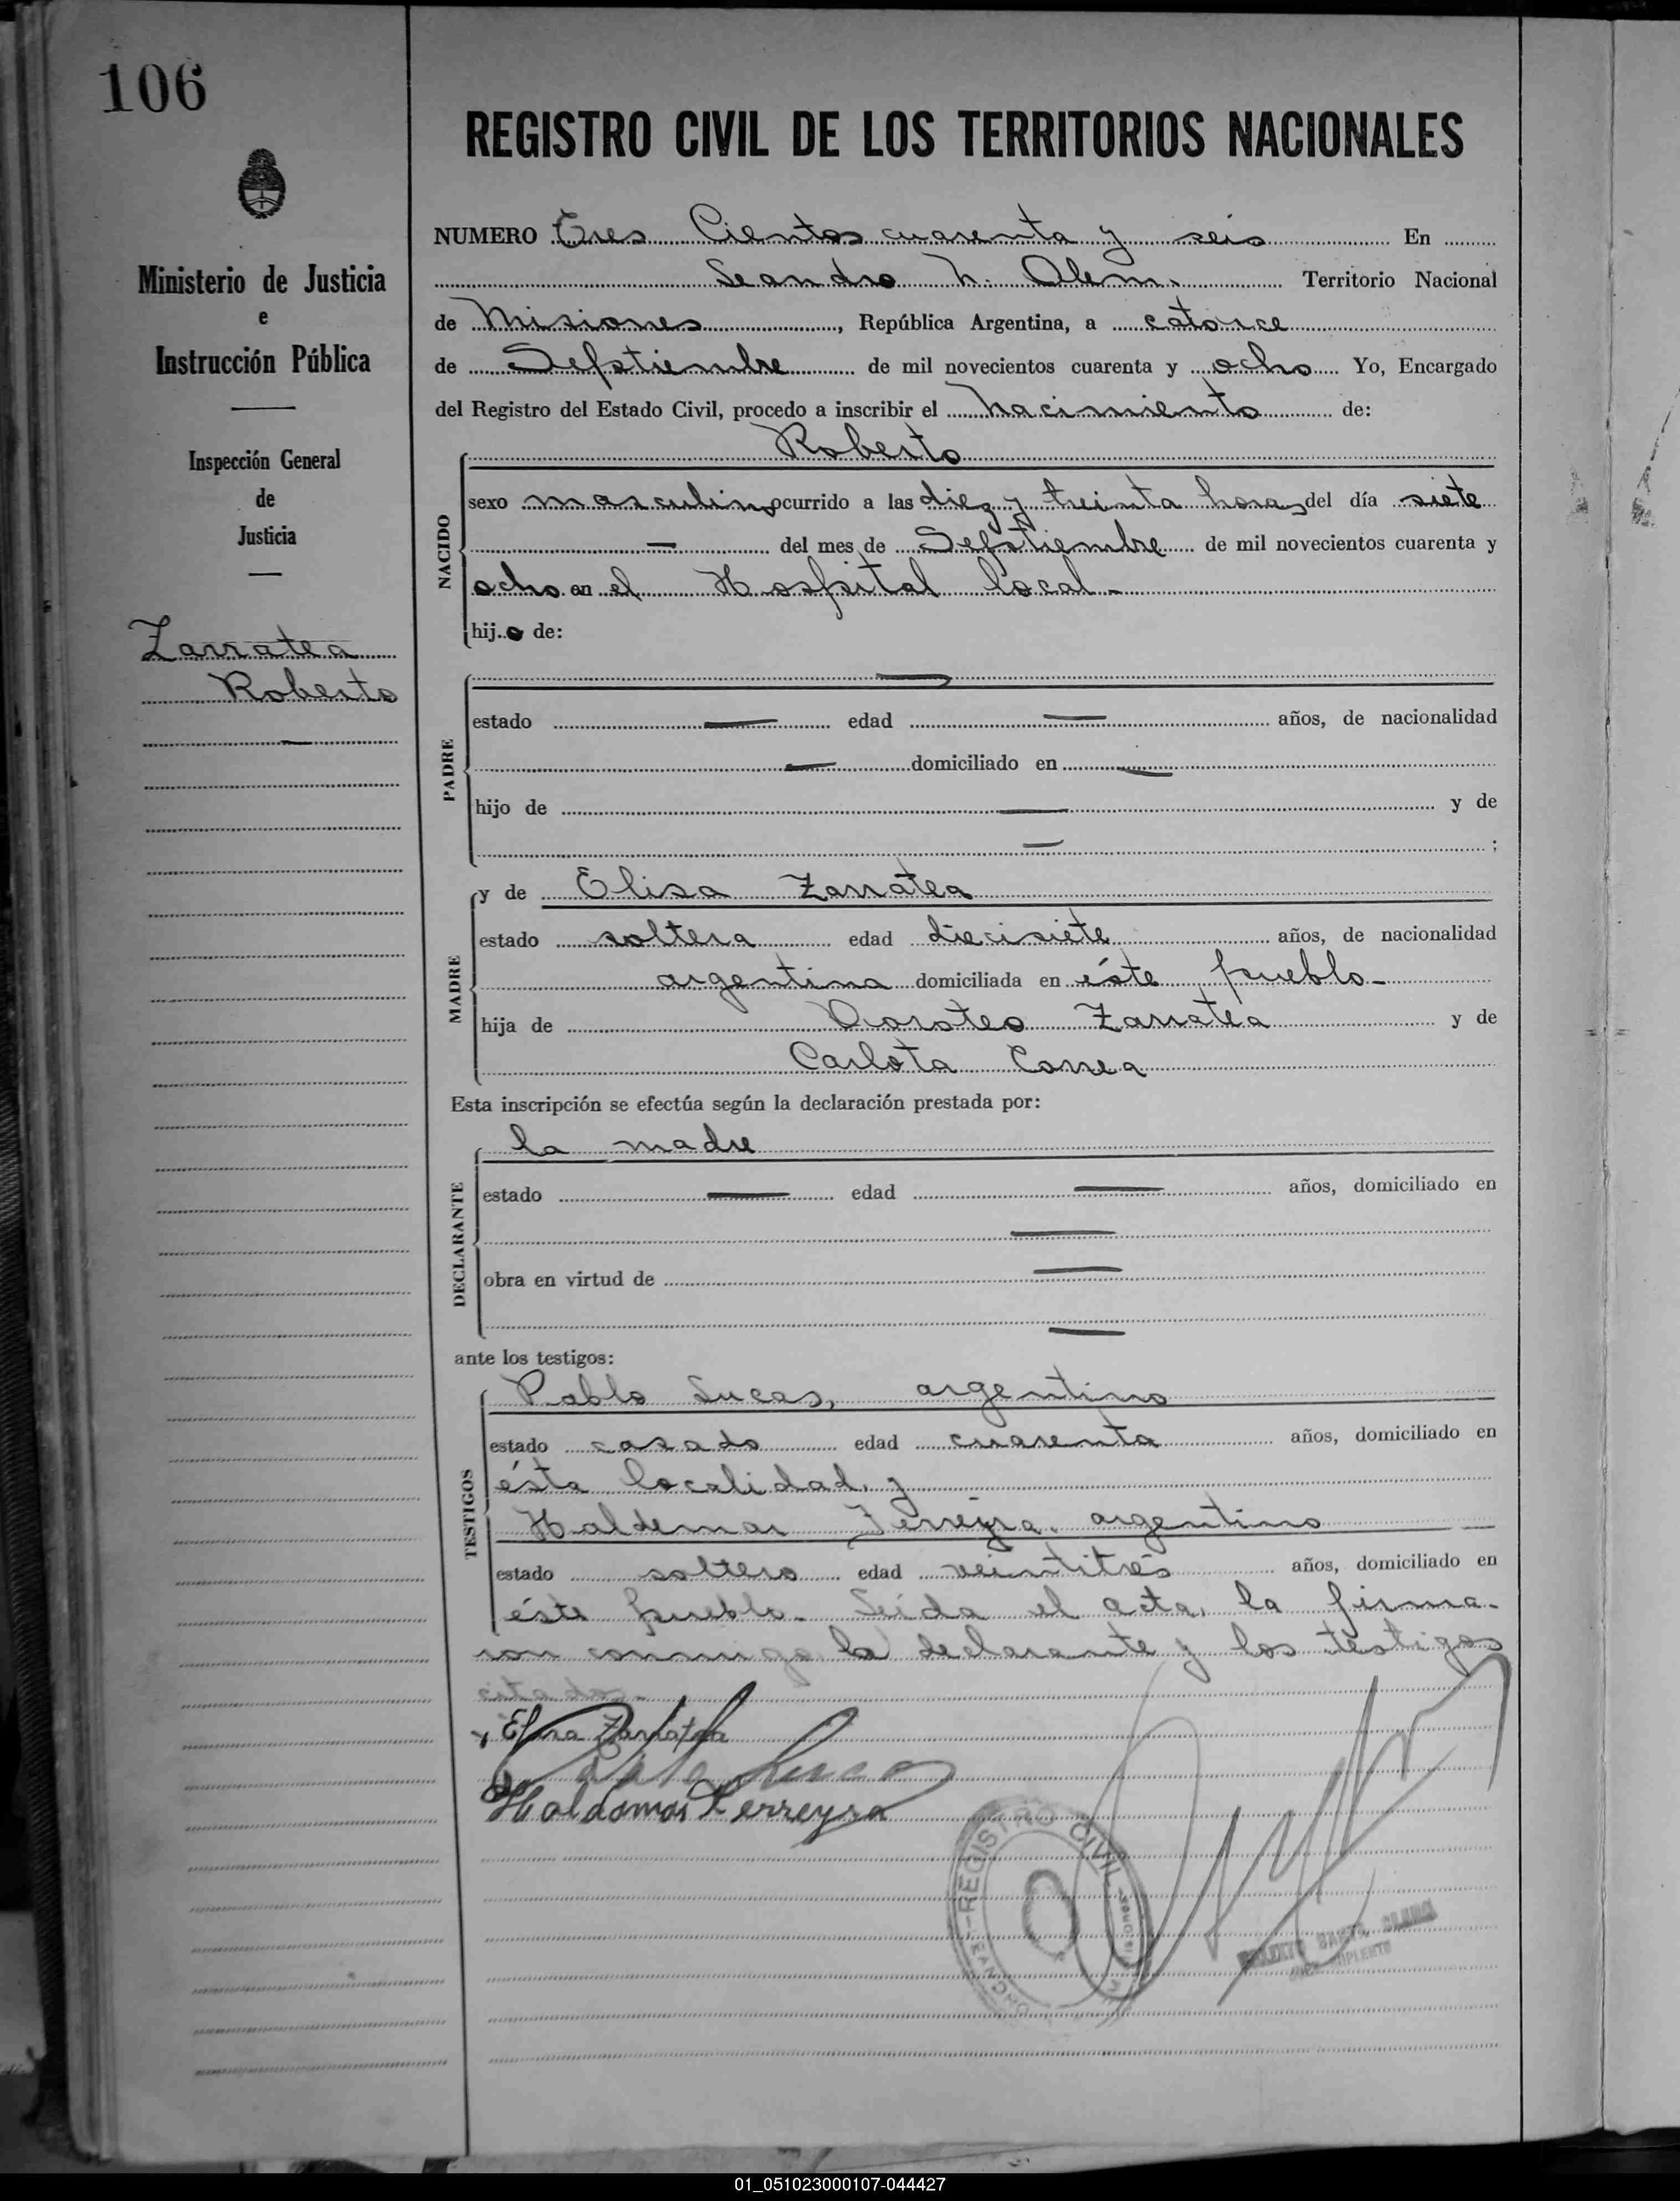 106
REGISTRO CIVIL DE LOS TERRITORIOS NACIONALES
Ministerio de Justicia
e
Instrucción Pública
Inspección General
de
Justicia
Zarratea
Roberto
NUMERO Tres Cientos cuarenta y seis En
Leandro N. Alem. Territorio Nacional
de Misiones, República Argentina, a catorce
de Septiembre de mil novecientos cuarenta y ocho Yo, Encargado
del Registro del Estado Civil, procedo a inscribir el nacimiento de:
Roberto
NACIDO
sexo masculino ocurrido a las diez y treinta horas del día siete
— del mes de Septiembre de mil novecientos cuarenta y
ocho en el Hospital local.-
hijo de:
PADRE
—
estado — edad — años, de nacionalidad
— domiciliado en —
hijo de — y de
— ;
MADRE
y de Elisa Zarratea
estado soltera edad diecisiete años, de nacionalidad
argentina domiciliada en éste pueblo.-
hija de Doroteo Zarratea y de
Carlota Correa
Esta inscripción se efectúa según la declaración prestada por:
DECLARANTE
la madre
estado — edad — años, domiciliado en
—
obra en virtud de —
—
ante los testigos:
TESTIGOS
Pablo Lucas, argentino
estado casado edad cuarenta años, domiciliado en
ésta localidad, y
Haldemar Ferreyra, argentino
estado soltero edad veintitrés años, domiciliado en
éste pueblo.- Leída el acta, la firma-
ron conmigo la declarante y los testigos
citados.-
Zarratea
Pablo Lucas
Haldemar Ferreyra
REGISTRO CIVIL
01_051023000107-044427